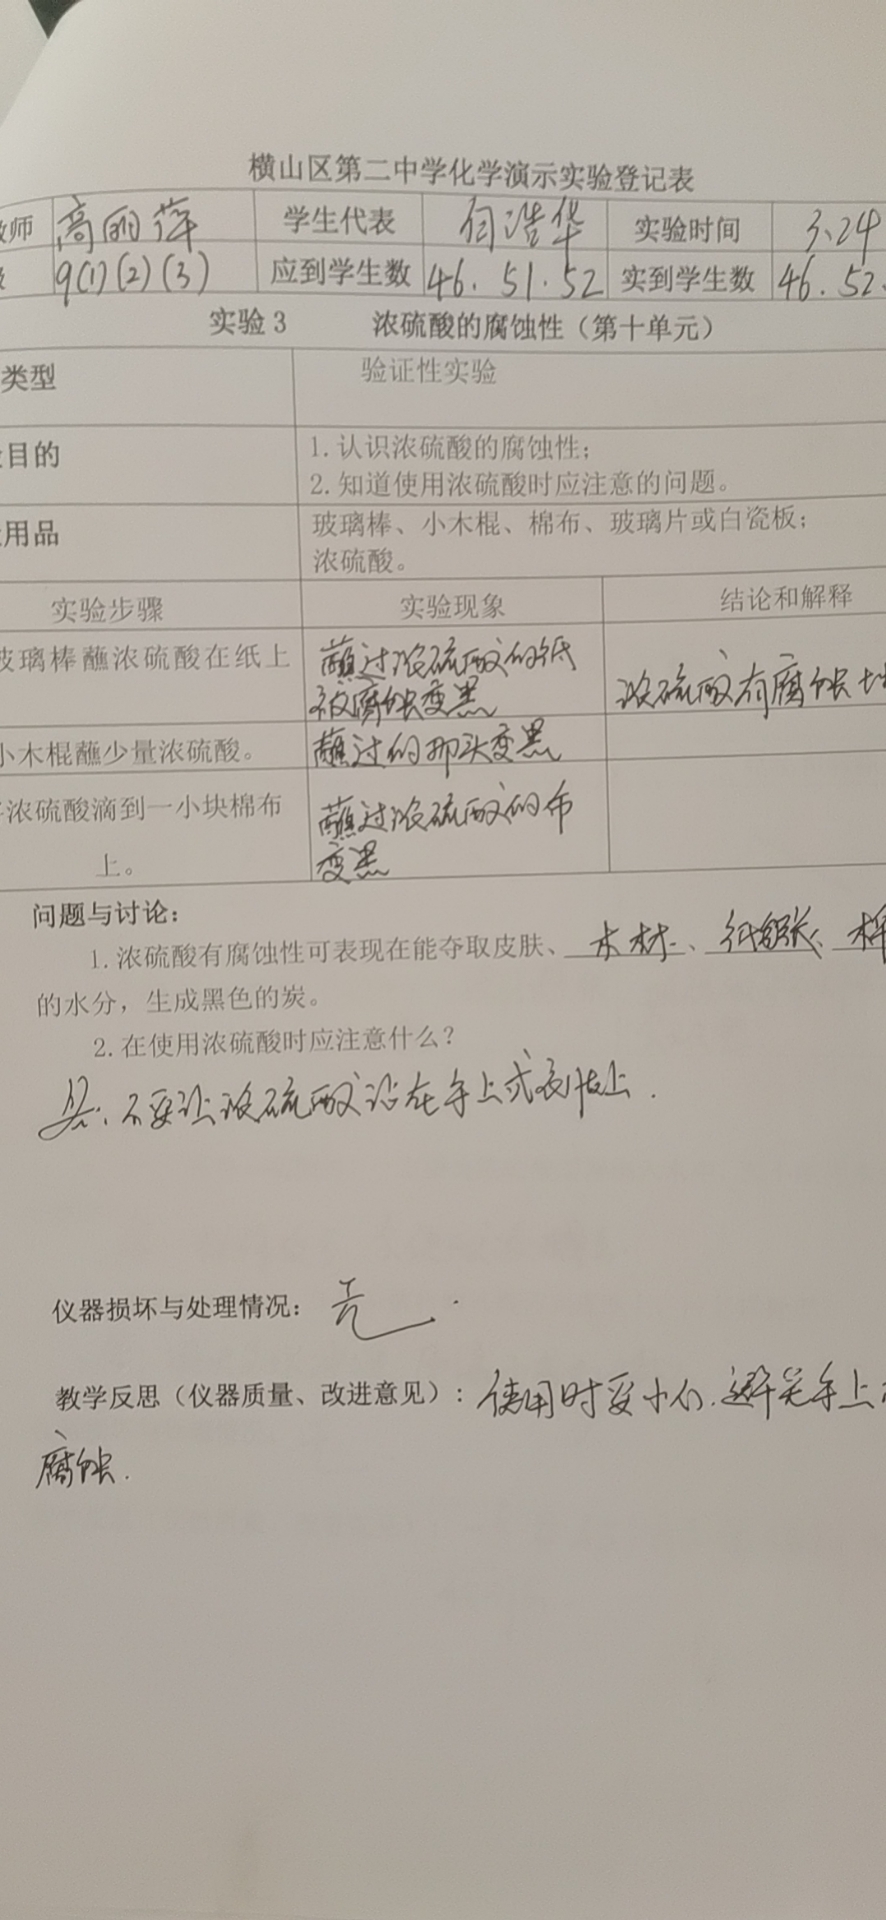 横山区第二中学化学演示实验登记表
教师 高丽萍 学生代表 白浩华 实验时间 3.24
9(1)(2)(3) 应到学生数 46. 51. 52 实到学生数 46. 52.
实验 3 浓硫酸的腐蚀性（第十单元）
类型 验证性实验
目的 1.认识浓硫酸的腐蚀性；
2.知道使用浓硫酸时应注意的问题。
用品 玻璃棒、小木棍、棉布、玻璃片或白瓷板；
浓硫酸。
实验步骤 实验现象 结论和解释
玻璃棒蘸浓硫酸在纸上 蘸过浓硫酸的纸
被腐蚀变黑 浓硫酸有腐蚀性
小木棍蘸少量浓硫酸。 蘸过的那头变黑
浓硫酸滴到一小块棉布 蘸过浓硫酸的布
上。 变黑
问题与讨论：
1.浓硫酸有腐蚀性可表现在能夺取皮肤、木材、纸张、棉
的水分，生成黑色的炭。
2.在使用浓硫酸时应注意什么？
答：不要让浓硫酸沾在手上或衣服上.
仪器损坏与处理情况： 无.
教学反思（仪器质量、改进意见）：使用时要小心.避免手上
腐蚀.